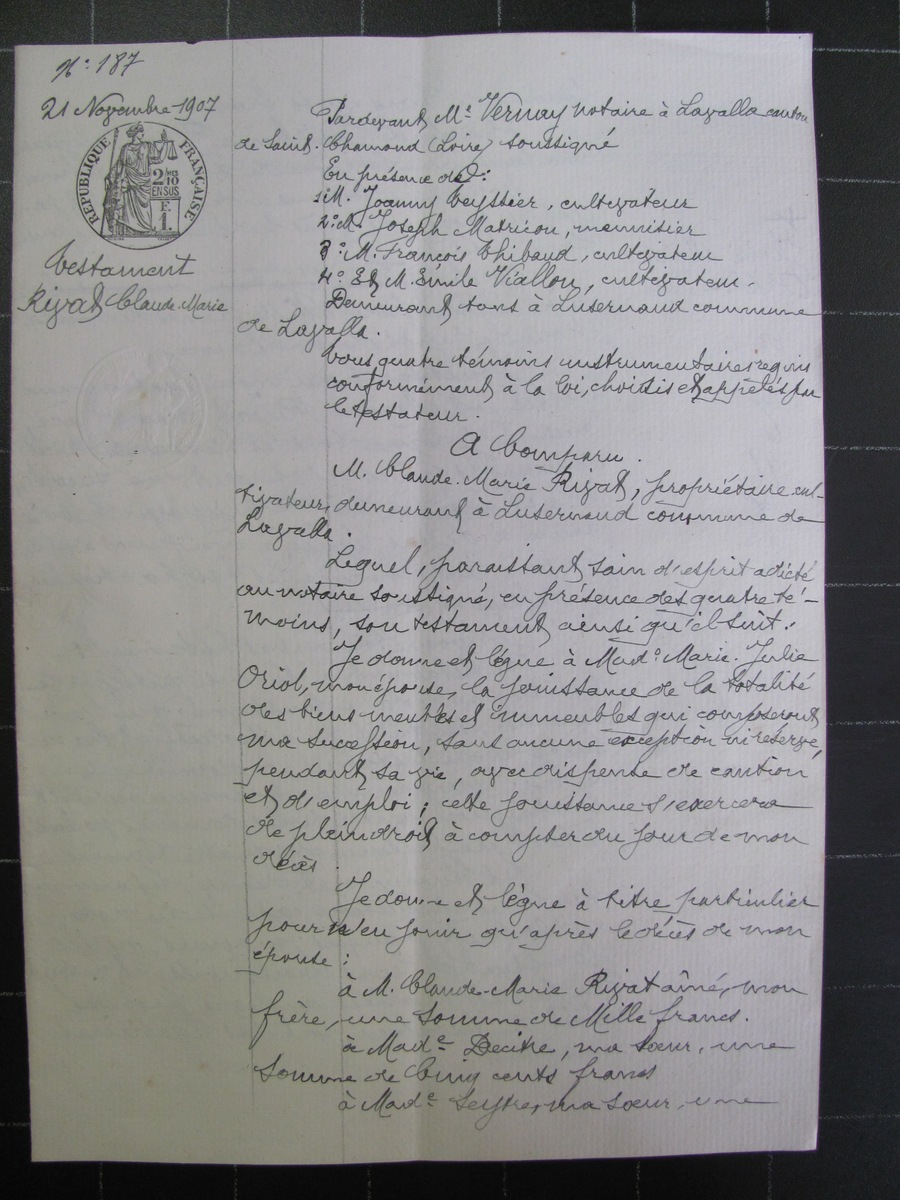 N° 187
21 Novembre 1907
RÉPUBLIQUE FRANÇAISE
2/10
EN SUS
F.
1.
Testament
Rivat Claude-Marie
Pardevant Me Vernay notaire à Lavalla canton
de Saint-Chamond (Loire) soussigné
En présence de :
1° M. Joanny Teyssier, cultivateur
2° M. Joseph Matricon, menuisier
3° M. François Thibaud, cultivateur
4° Et M. Émile Viallon, cultivateur.
Demeurant tous à Luzernaud commune
de Lavalla.
Tous quatre témoins instrumentaires requis
conformément à la loi, choisis et appelés par
le testateur.
A Comparu.
M. Claude-Marie Rivat, propriétaire cul-
tivateur, demeurant à Luzernaud commune de
Lavalla.
Lequel, paraissant sain d'esprit a dicté
au notaire soussigné, en présence des quatre té-
moins, son testament ainsi qu'il suit :
Je donne et lègue à Made Marie-Julie
Oriol, mon épouse, la jouissance de la totalité
des biens meubles et immeubles qui composeront
ma succession, sans aucune exception ni réserve,
pendant sa vie, avec dispense de caution
et d'emploi ; cette jouissance s'exercera
de plein droit à compter du jour de mon
décès.
Je donne et lègue à titre particulier
pour n'en jouir qu'après le décès de mon
épouse :
à M. Claude-Marie Rivat aîné, mon
frère, une somme de Mille francs.
à Made Decitre, ma sœur, une
somme de Cinq cents francs
à Made Seytre, ma sœur, une